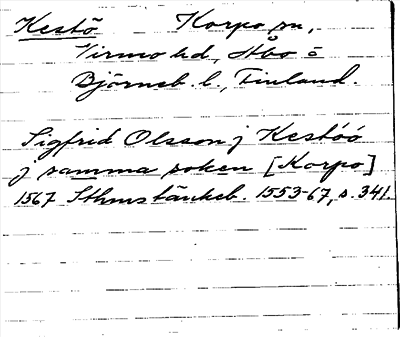 Kestö Korpo sn,
Virmo hd, Åbo o
Björneb. l., Finland.
Sigfrid Olsson j Kestöö
j samma soken [Korpo]
1567 Sthms tänkeb. 1553-67, s. 341.